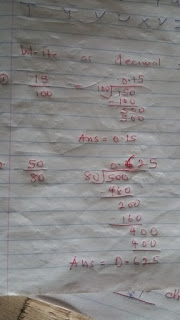 Write as decimal
15/100 = 0.15
100√150
-100
500
500
Ans = 0.15
50/80 0.625
80√500
480
200
160
400
400
Ans = 0.625